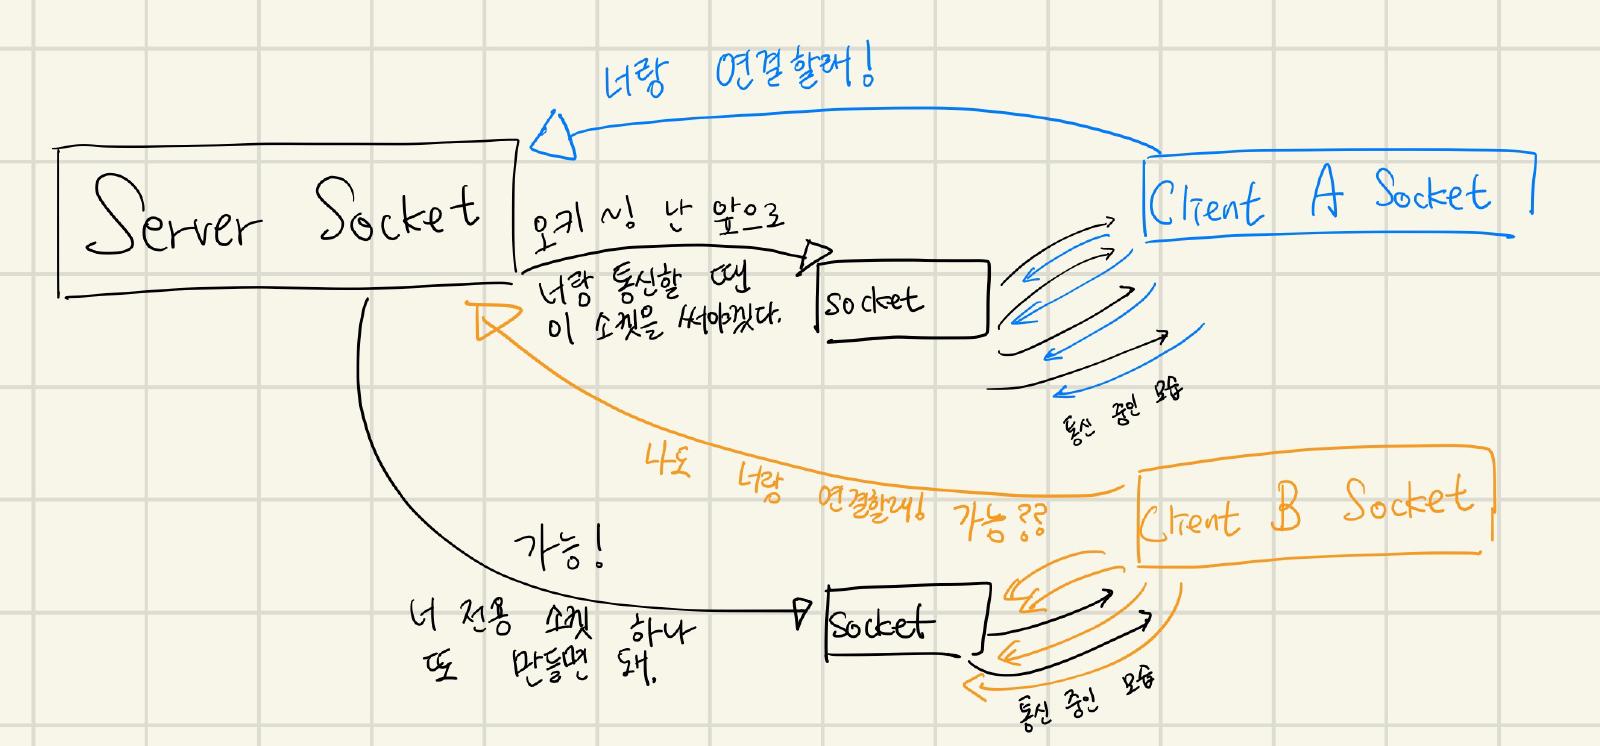 너랑 연결할래!
Server Socket
Client A Socket
오키 ~! 난 앞으로
너랑 통신할 땐
이 소켓을 써야겠다.
socket
통신 중인 모습
나도 너랑 연결할래! 가능??
Client B Socket
가능!
너 전용 소켓 하나
또 만들면 돼.
socket
통신 중인 모습